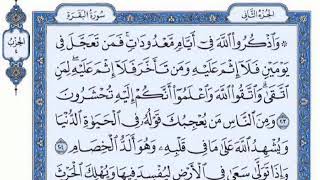 الجزء الثاني
سورة البقرة
الحزب
٤
۞ وَاذْكُرُوا اللَّهَ فِي أَيَّامٍ مَّعْدُودَاتٍ فَمَن تَعَجَّلَ فِي
يَوْمَيْنِ فَلَا إِثْمَ عَلَيْهِ وَمَن تَأَخَّرَ فَلَا إِثْمَ عَلَيْهِ لِمَنِ
اتَّقَى وَاتَّقُوا اللَّهَ وَاعْلَمُوا أَنَّكُمْ إِلَيْهِ تُحْشَرُونَ
٢٠٣ وَمِنَ النَّاسِ مَن يُعْجِبُكَ قَوْلُهُ فِي الْحَيَاةِ الدُّنْيَا
وَيُشْهِدُ اللَّهَ عَلَى مَا فِي قَلْبِهِ وَهُوَ أَلَدُّ الْخِصَامِ ٢٠٤
وَإِذَا تَوَلَّى سَعَى فِي الْأَرْضِ لِيُفْسِدَ فِيهَا وَيُهْلِكَ الْحَرْثَ